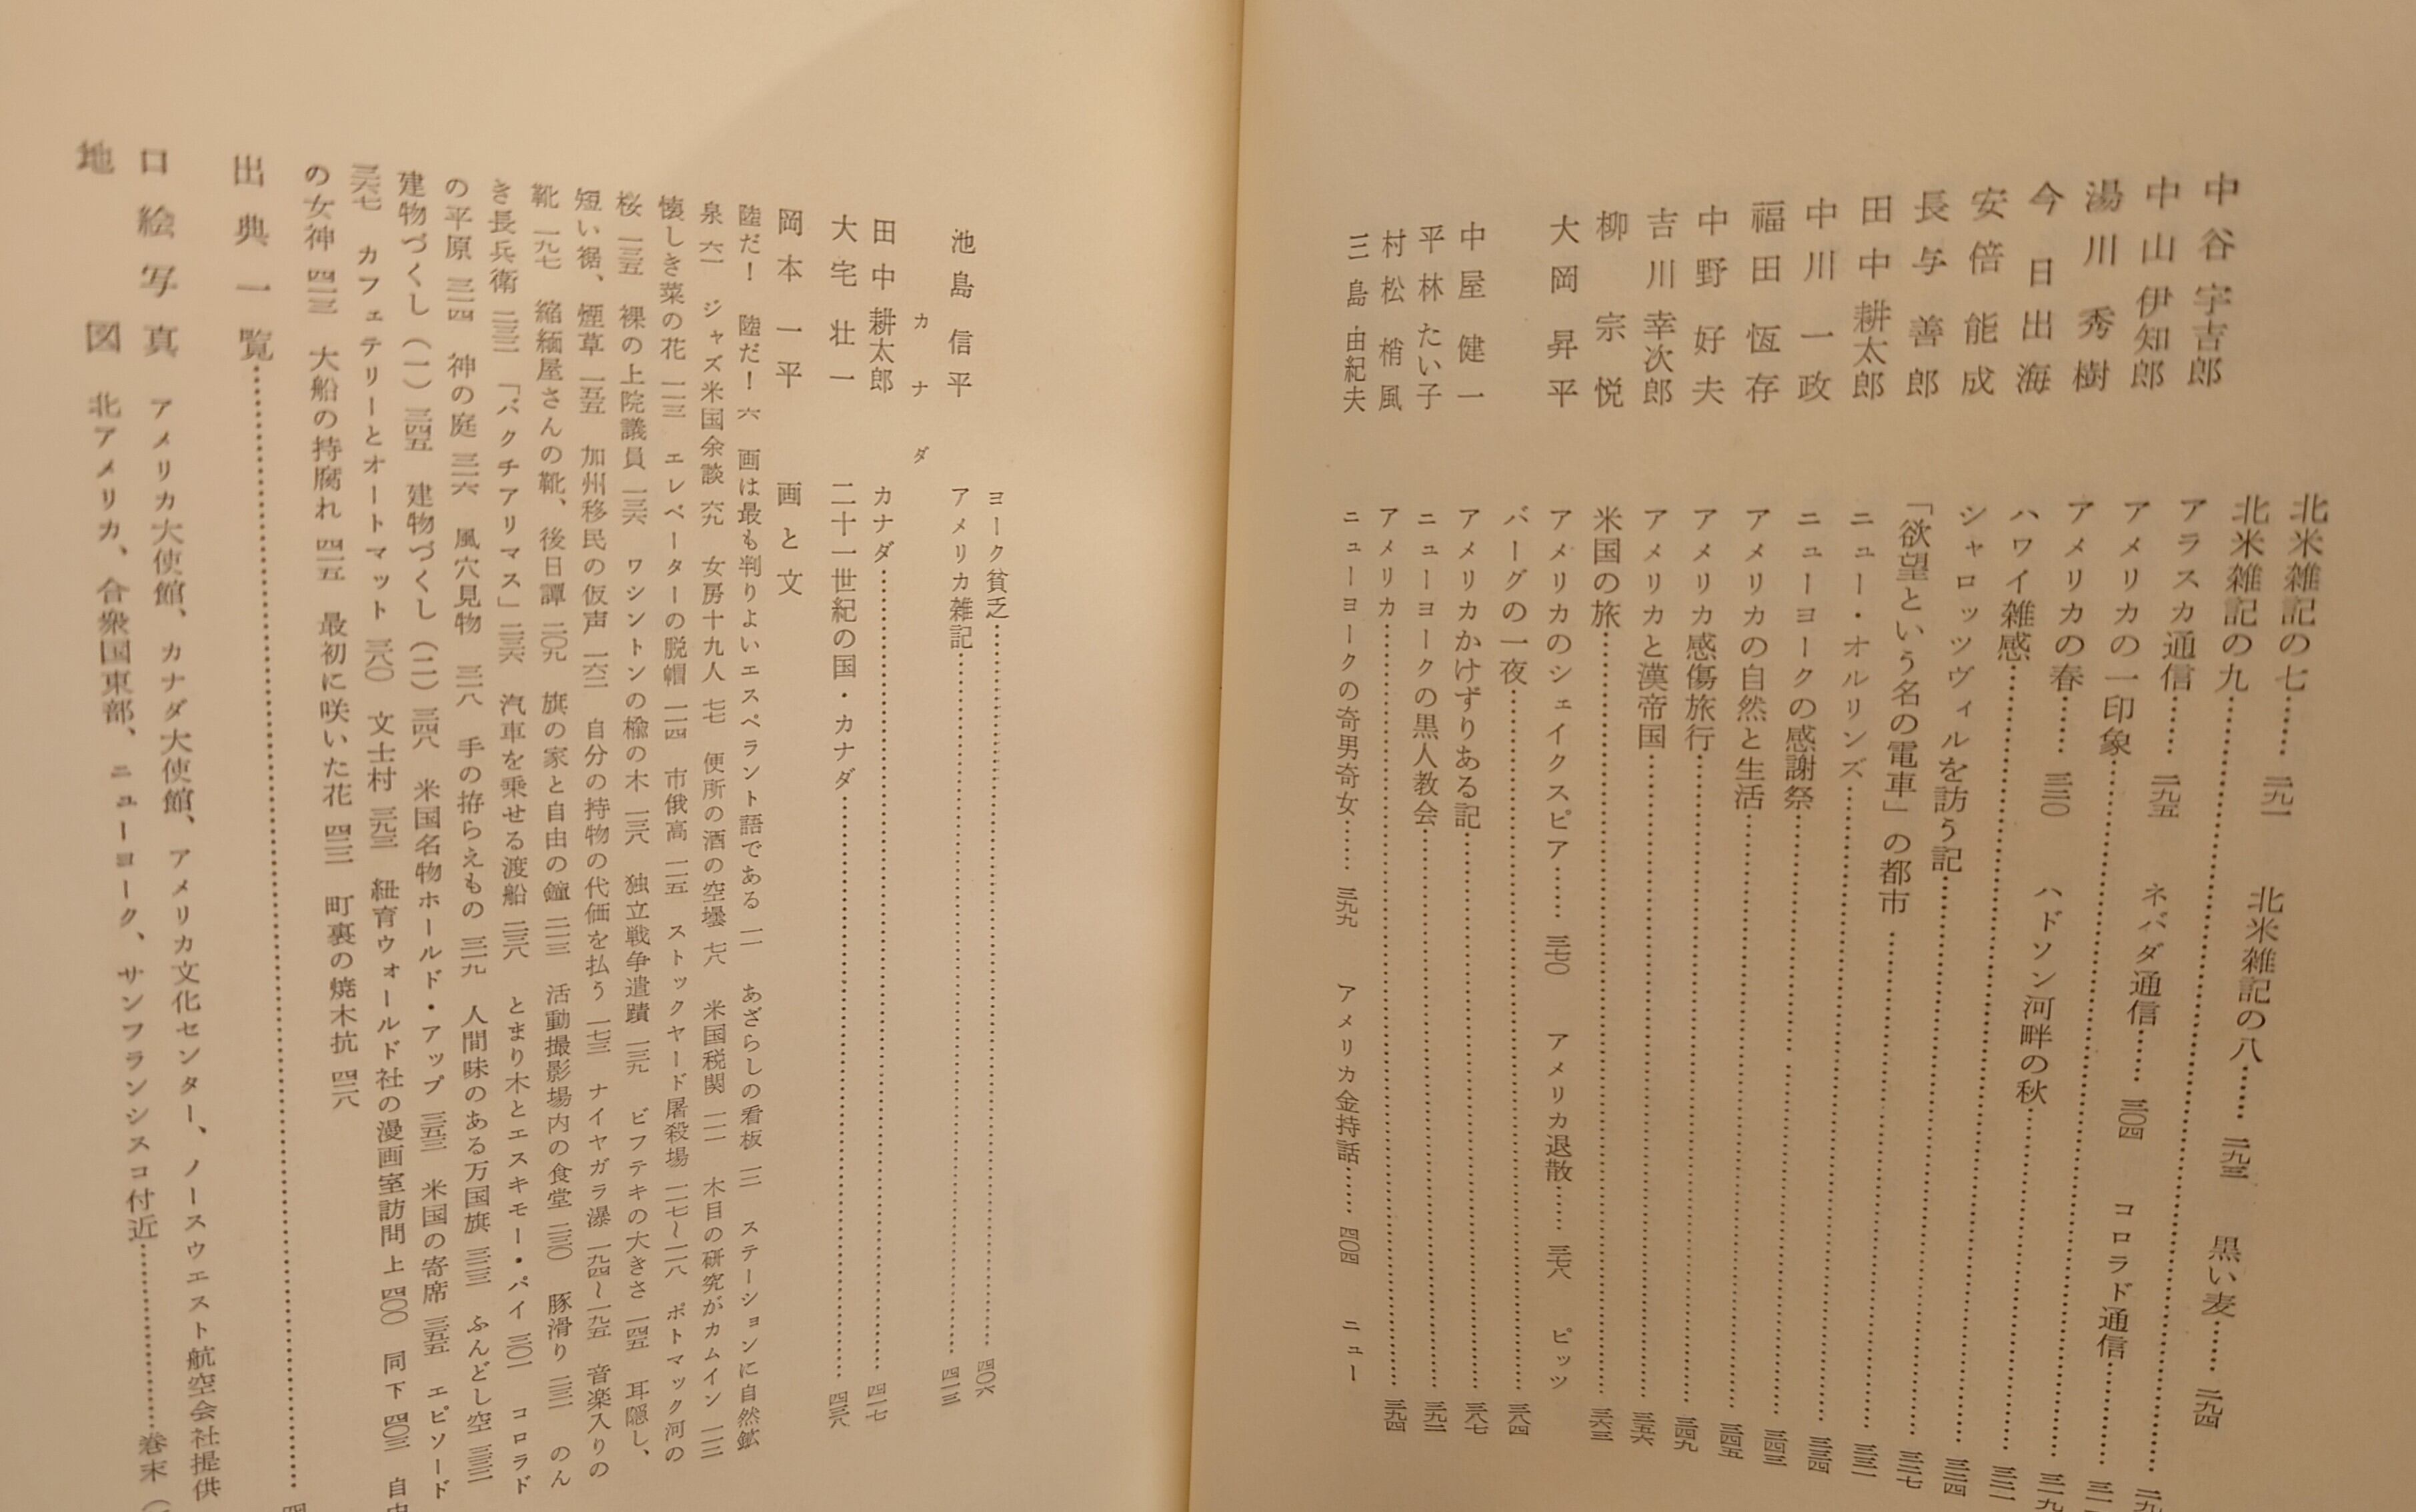 北米雑記の七…… 二九一　北米雑記の八…… 二九三　黒い麦…… 二九四
北米雑記の九……
中谷宇吉郎　アラスカ通信…… 二九五　ネバダ通信…… 三〇四　コロラド通信……
中山伊知郎　アメリカの一印象…… 三一九
湯川秀樹　アメリカの春…… 三二〇　ハドソン河畔の秋…… 三二二
今日出海　ハワイ雑感…… 三二四
安倍能成　シャロッツヴィルを訪う記…… 三二七
長与善郎　「欲望という名の電車」の都市…… 三三一
田中耕太郎　ニュー・オルリンズ…… 三三四
中川一政　ニューヨークの感謝祭…… 三四三
福田恆存　アメリカの自然と生活…… 三四五
中野好夫　アメリカ感傷旅行…… 三四九
吉川幸次郎　アメリカと漢帝国…… 三五六
柳宗悦　米国の旅…… 三六三
大岡昇平　アメリカのシェイクスピア…… 三七〇　アメリカ退散…… 三七八　ピッツ
バーグの一夜…… 三八四
中屋健一　アメリカかけずりある記…… 三八七
平林たい子　ニューヨークの黒人教会…… 三九二
村松梢風　アメリカ…… 三九四
三島由紀夫　ニューヨークの奇男奇女…… 三九九　アメリカ金持話…… 四〇四　ニュー
ヨーク貧乏…… 四〇六
池島信平　アメリカ雑記…… 四一三
カナダ
田中耕太郎　カナダ…… 四一七
大宅壮一　二十一世紀の国・カナダ…… 四三八
岡本一平　画と文
陸だ！　陸だ！ 六　画は最も判りよいエスペラント語である 一一　あざらしの看板 三一　ステーションに自然鉱
泉 六一　ジャズ米国余談 六九　女房十九人 七七　便所の酒の空壜 七八　米国税関 一一一　木目の研究がカムイン 一一三
懐しき菜の花 一一三　エレベーターの脱帽 一一四　市俄高 一一五　ストックヤード屠殺場 一一七〜一一八　ポトマック河の
桜 一三五　裸の上院議員 一三六　ワシントンの楡の木 一三八　独立戦争遺蹟 一三九　ビフテキの大きさ 一四五　耳隠し、
短い裾、煙草 一五五　加州移民の仮声 一六二　自分の持物の代価を払う 一七三　ナイヤガラ瀑 一九四〜一九五　音楽入りの
靴 一九七　縮緬屋さんの靴、後日譚 二〇九　旗の家と自由の鐘 二一三　活動撮影場内の食堂 二三〇　豚滑り 二三一　のん
き長兵衛 二三三　「バクチアリマス」 二三六　汽車を乗せる渡船 二三八　とまり木とエスキモー・パイ 三〇一　コロラド
の平原 三一四　神の庭 三一六　風穴見物 三一八　手の拵らえもの 三一九　人間味のある万国旗 三三三　ふんどし空 三三三
建物づくし（一） 三四五　建物づくし（二） 三四八　米国名物ホールド・アップ 三五三　米国の寄席 三五五　エピソード
三六七　カフェテリーとオートマット 三八〇　文士村 三九三　紐育ウォールド社の漫画室訪問 上 四〇〇　同 下 四〇三　自由
の女神 四一三　大船の持腐れ 四一五　最初に咲いた花 四二三　町裏の焼木杭 四二八
出典一覧…… 四
口絵写真　アメリカ大使館、カナダ大使館、アメリカ文化センター、ノースウエスト航空会社提供
地図　北アメリカ、合衆国東部、ニューヨーク、サンフランシスコ付近…… 巻末